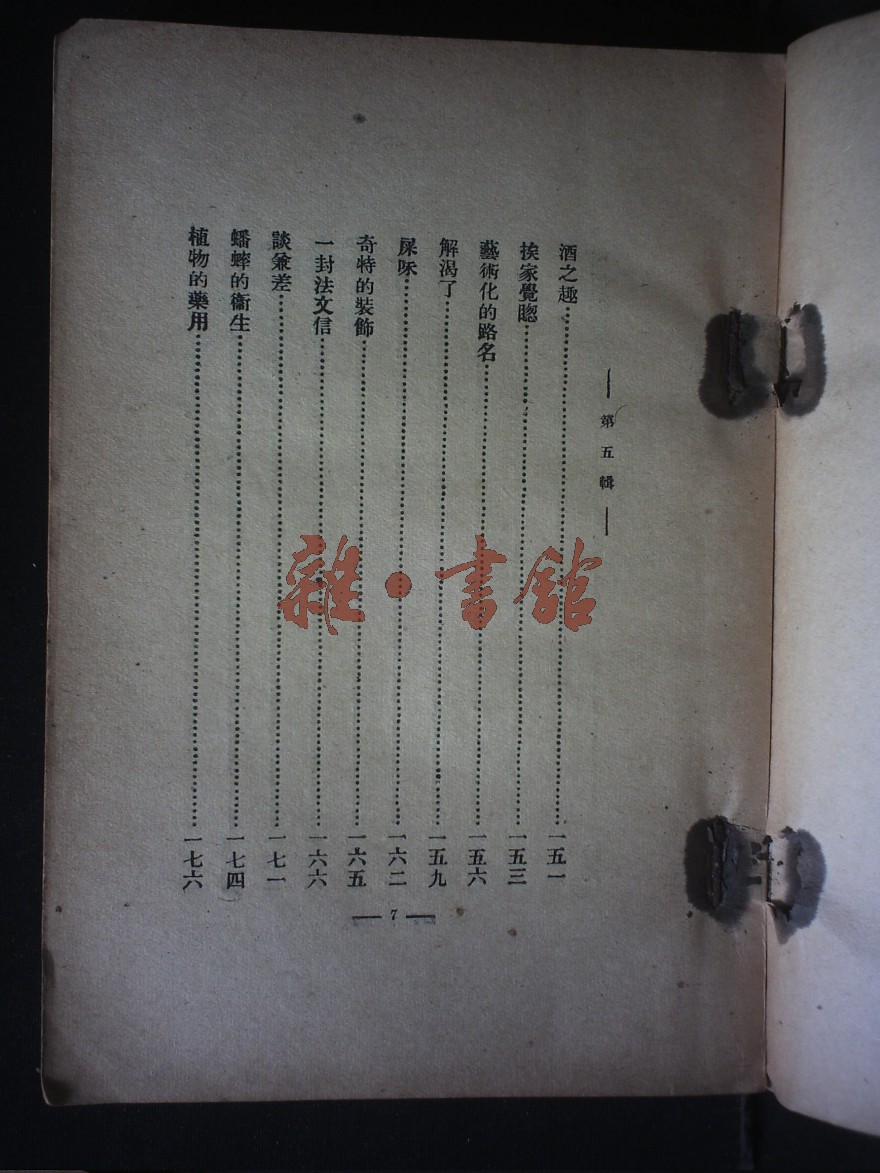 — 第五輯 —
酒之趣……一五一
挨家覺……一五三
藝術化的路名……一五六
解渴了……一五九
屎……一六二
奇特的裝飾……一六五
一封法文信……一六六
談兼差……一七一
蟀的衞生……一七四
植物的藥用……一七六
— 7 —
雜·書館